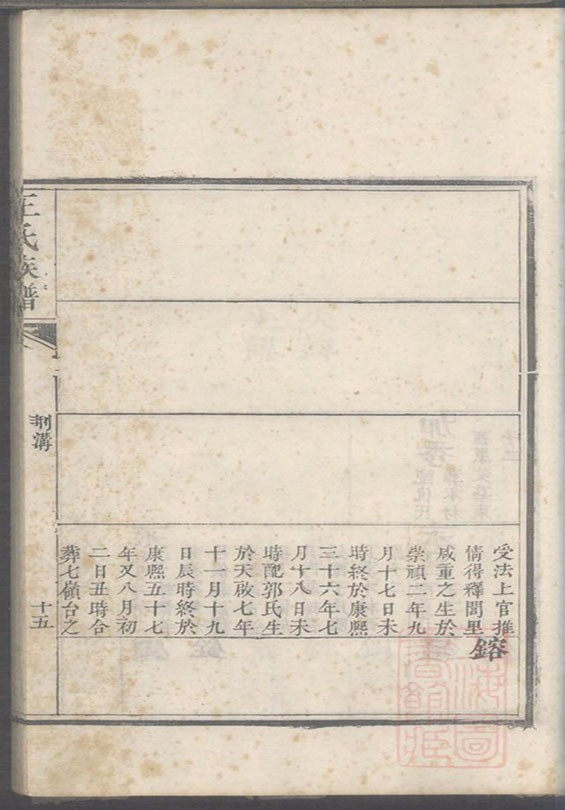 受法上官推
情得釋閭里
咸重之生於
崇禎二年九
月十七日未
時終於康熙
三十六年七
月十八日未
時配郭氏生
於天啟七年
十一月十九
日辰時終於
康熙五十七
年又八月初
二日丑時合
葬七嶺台之
鎔
王氏族譜
荆溝
十五